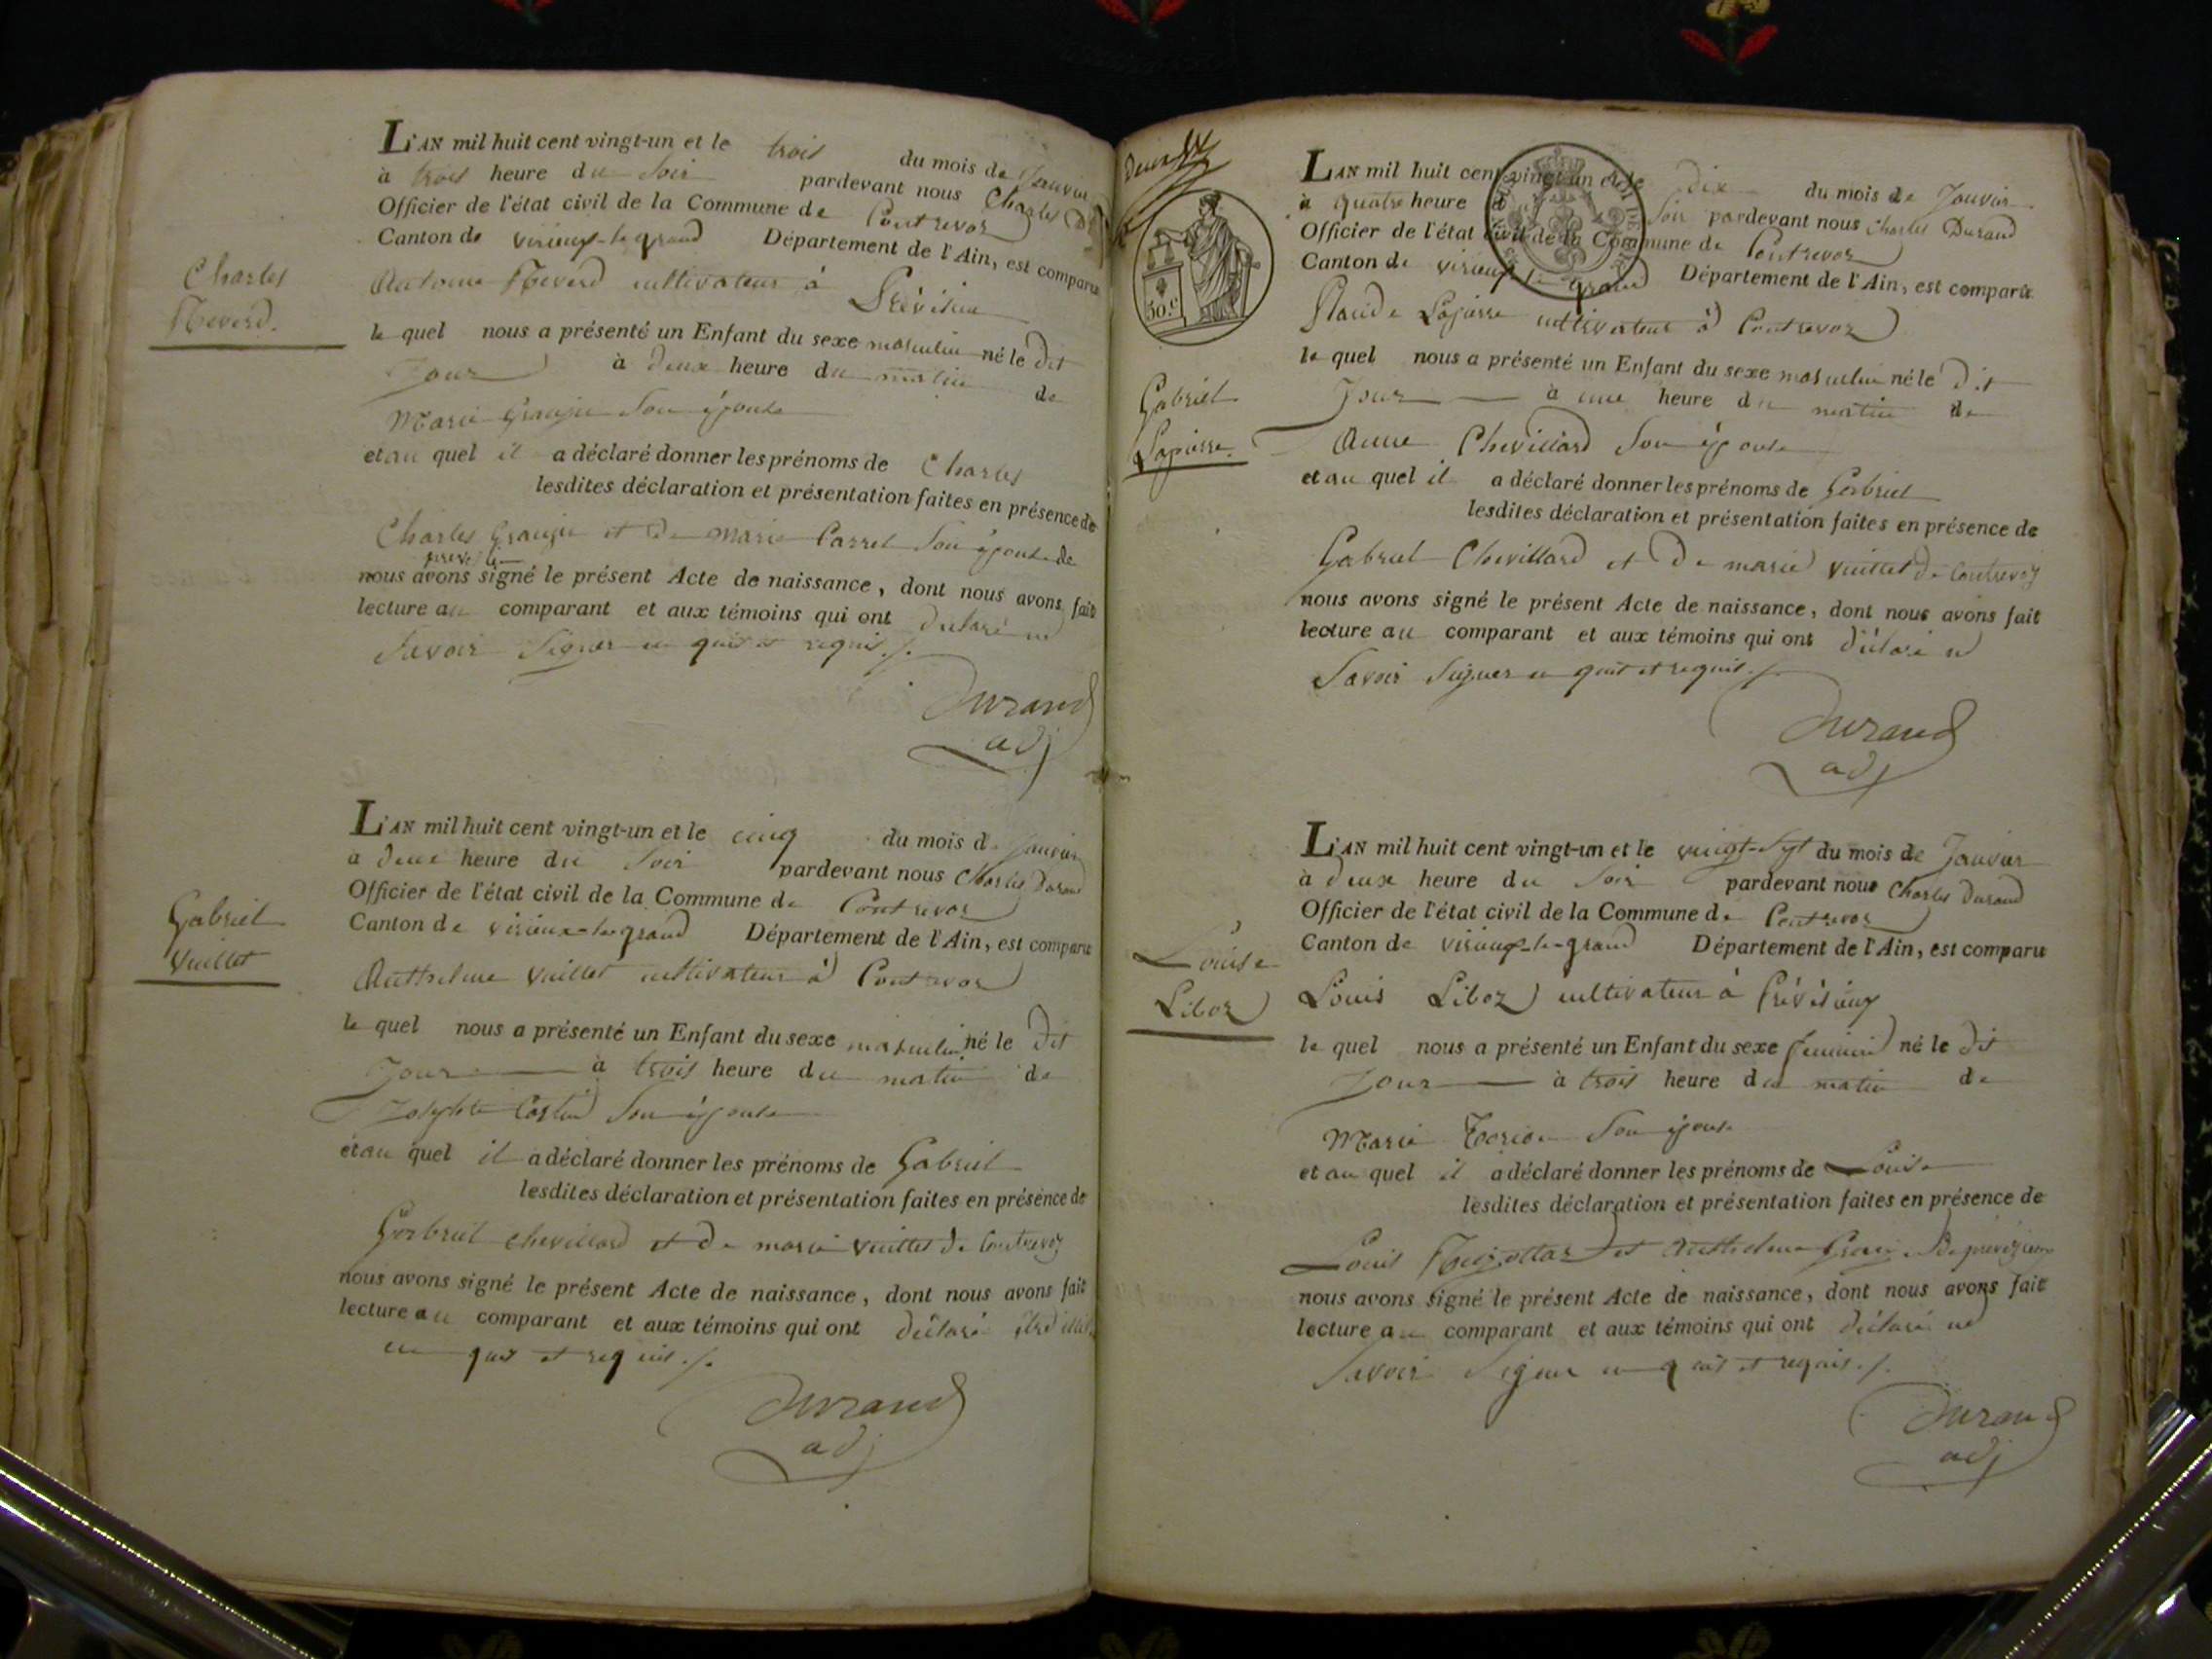 Charles
Reverd.
L'AN mil huit cent vingt-un et le trois du mois de Janvier
à trois heure du soir pardevant nous Charles
Officier de l'état civil de la Commune de Contrevoz
Canton de virieux-le-grand Département de l'Ain, est comparu
Antoine Reverd cultivateur à
le quel nous a présenté un Enfant du sexe masculin né le dit
Jour à deux heure du matin de
Marie Grangie son épouse
et au quel il a déclaré donner les prénoms de Charles
lesdites déclaration et présentation faites en présence de
Charles Grangie et de marie Carrel son épouse de
nous avons signé le présent Acte de naissance, dont nous avons fait
lecture au comparant et aux témoins qui ont déclaré ne
Savoir Signer en quit et requis ./.
Durand
adj
Gabriel
Vuillet
L'AN mil huit cent vingt-un et le cinq du mois de Janvier
à deux heure du soir pardevant nous Charles Durand
Officier de l'état civil de la Commune de Contrevoz
Canton de virieux-le-grand Département de l'Ain, est comparu
Anthelme Vuillet cultivateur à Contrevoz
le quel nous a présenté un Enfant du sexe masculin né le dit
Jour à trois heure du matin de
Josephte son épouse
et au quel il a déclaré donner les prénoms de Gabriel
lesdites déclaration et présentation faites en présence de
Gabriel chevillard et de marie vuillet de Contrevoz
nous avons signé le présent Acte de naissance, dont nous avons fait
lecture au comparant et aux témoins qui ont déclaré
en quit et requis ./.
Durand
adj
50.c
Gabriel
Lapierre
L'AN mil huit cent vingt-un et le dix du mois de Janvier
à quatre heure du Soir pardevant nous Charles Durand
Officier de l'état civil de la Commune de Contrevoz
Canton de virieux-le-grand Département de l'Ain, est comparu
Claude Lapierre cultivateur à Contrevoz
le quel nous a présenté un Enfant du sexe masculin né le dit
Jour à une heure du matin de
Anne Chevillard Son épouse
et au quel il a déclaré donner les prénoms de Gabriel
lesdites déclaration et présentation faites en présence de
Gabriel Chevillard et de marie vuillet de Contrevoz
nous avons signé le présent Acte de naissance, dont nous avons fait
lecture au comparant et aux témoins qui ont déclaré ne
Savoir Signer en quit et requis ./.
Durand
adj
Louise
Liboz
L'AN mil huit cent vingt-un et le vingt-sept du mois de Janvier
à deux heure du Soir pardevant nous Charles Durand
Officier de l'état civil de la Commune de Contrevoz
Canton de virieux-le-grand Département de l'Ain, est comparu
Louis Liboz cultivateur à Prévézieux
le quel nous a présenté un Enfant du sexe feminin né le dit
Jour à trois heure du matin de
Marie Son épouse
et au quel il a déclaré donner les prénoms de Louise
lesdites déclaration et présentation faites en présence de
Louis et Anthelme de
nous avons signé le présent Acte de naissance, dont nous avons fait
lecture au comparant et aux témoins qui ont déclaré ne
Savoir Signer en quit et requis ./.
Durand
adj